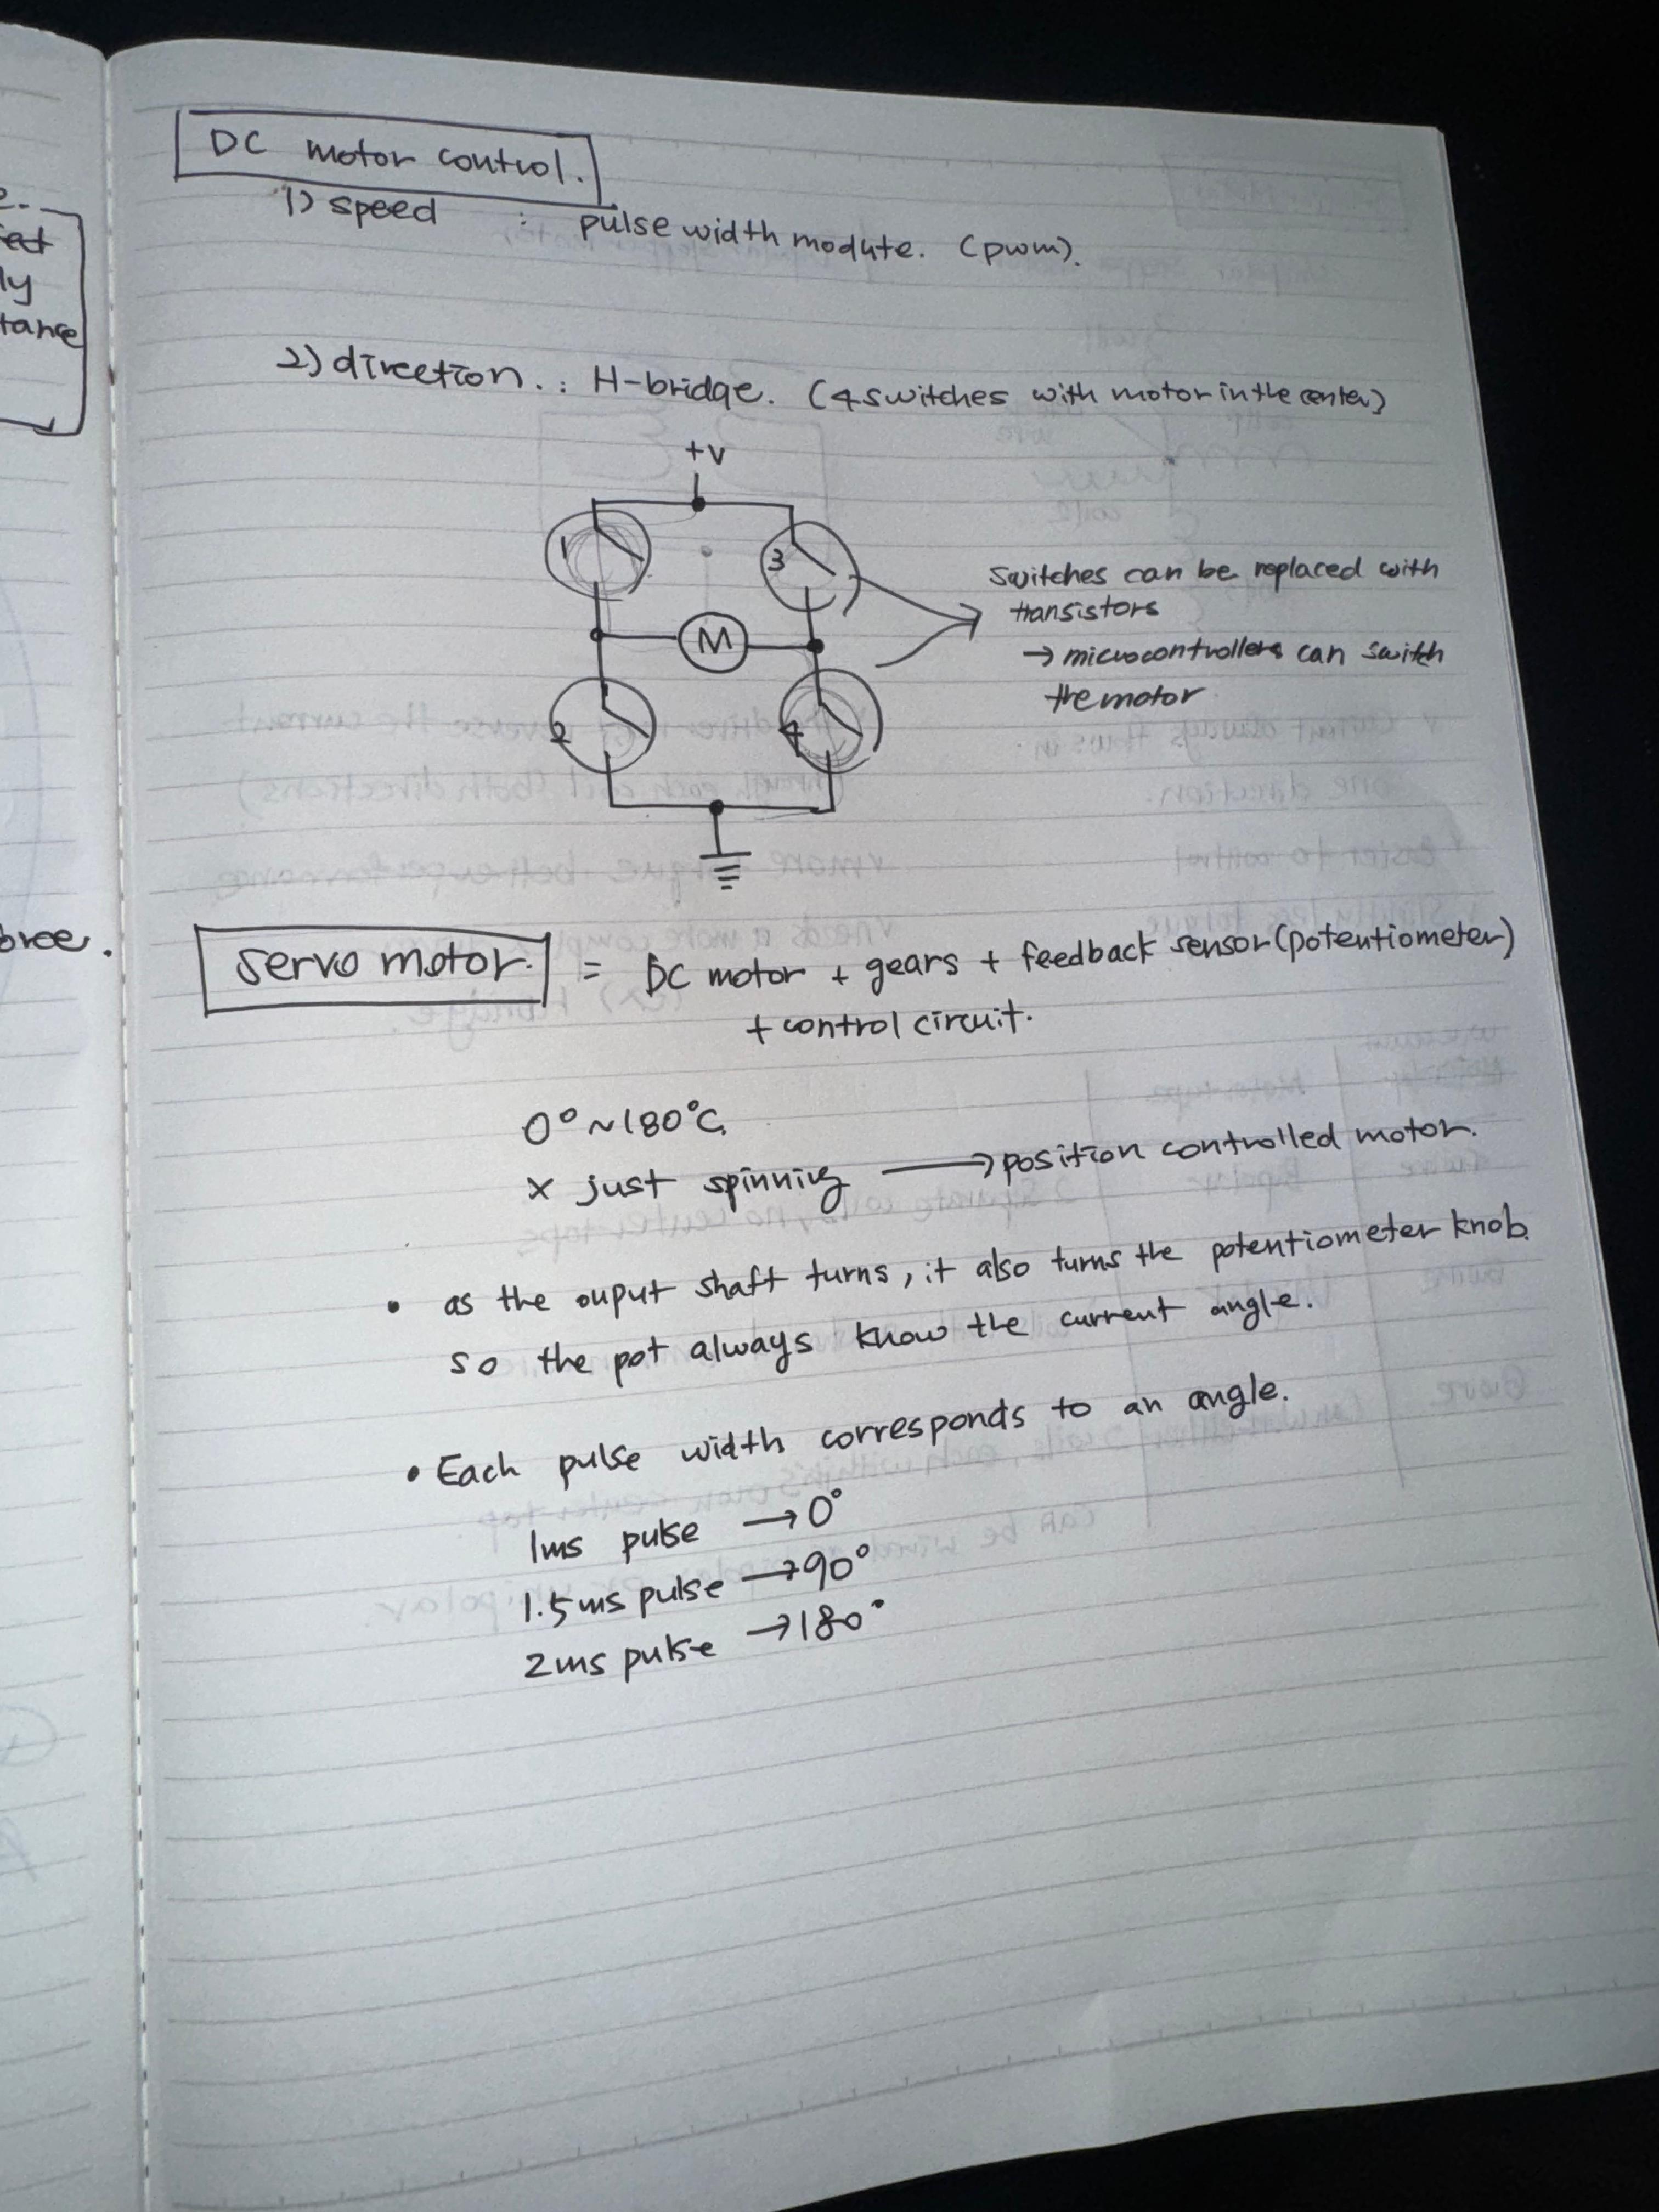 DC motor control.
1) speed : pulse width modute. (pwm).
2) direction. : H-bridge. (4 switches with motor in the center)
+V
1
3
M
2
4
Switches can be replaced with
transistors
→ microcontrollers can switch
the motor
servo motor. = DC motor + gears + feedback sensor (potentiometer)
+ control circuit.
0° ~ 180°C.
× just spinning → position controlled motor.
• as the ouput shaft turns, it also turns the potentiometer knob.
so the pot always know the current angle.
• Each pulse width corresponds to an angle.
1ms pulse → 0°
1.5ms pulse → 90°
2ms pulse → 180°